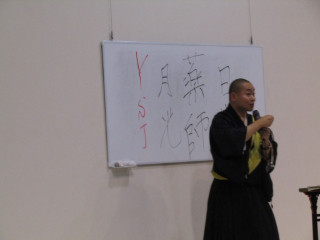 日
薬師
月光
YSJ